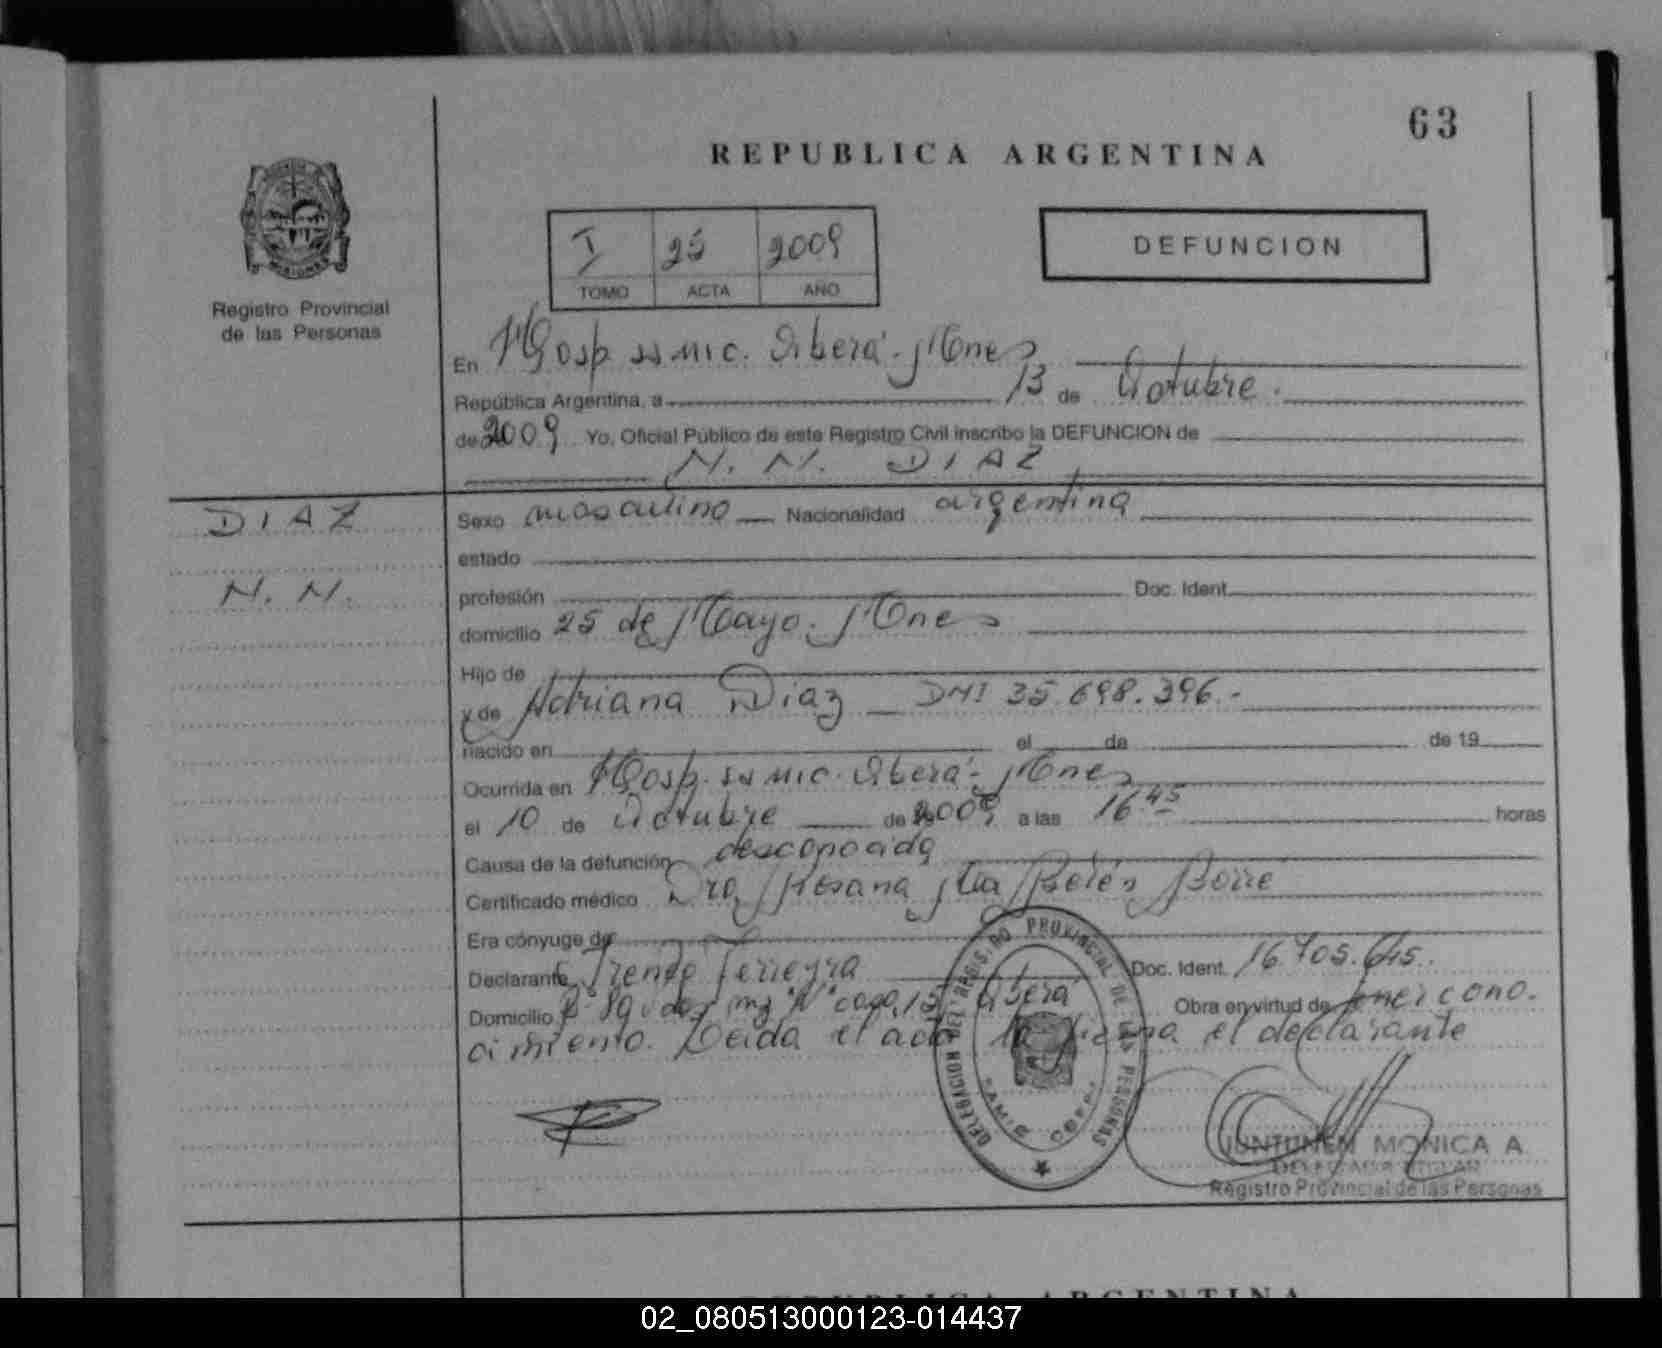 63
REPUBLICA ARGENTINA
MISIONES
I 25 2009
TOMO ACTA AÑO
DEFUNCION
Registro Provincial
de las Personas
En Hosp. SAMIC. Oberá - Mnes
República Argentina, a 13 de Octubre.
de 2009 Yo, Oficial Público de este Registro Civil inscribo la DEFUNCION de
N. N. DIAZ
DIAZ
N. N.
Sexo masculino Nacionalidad argentina
estado
profesión Doc. Ident.
domicilio 25 de Mayo. Mnes
Hijo de
y de Adriana Diaz DNI 35.698.396.-
nacido en el de de 19
Ocurrida en Hosp. SAMIC. Oberá - Mnes
el 10 de Octubre de 2009 a las 16 45 horas
Causa de la defunción desconocida
Certificado médico Dra. Rosana Belén
Era cónyuge de
Declarante Ferreyra Doc. Ident. 16.705.
Domicilio Oberá Obra en virtud de tener cono.
cimiento. Leida el acta la firma el declarante
DELEGACION DEL REGISTRO PROVINCIAL DE LAS PERSONAS
JUNTUNEN MONICA A.
DELEGADA TITULAR
Registro Provincial de las Personas
REPUBLICA ARGENTINA
02_080513000123-014437